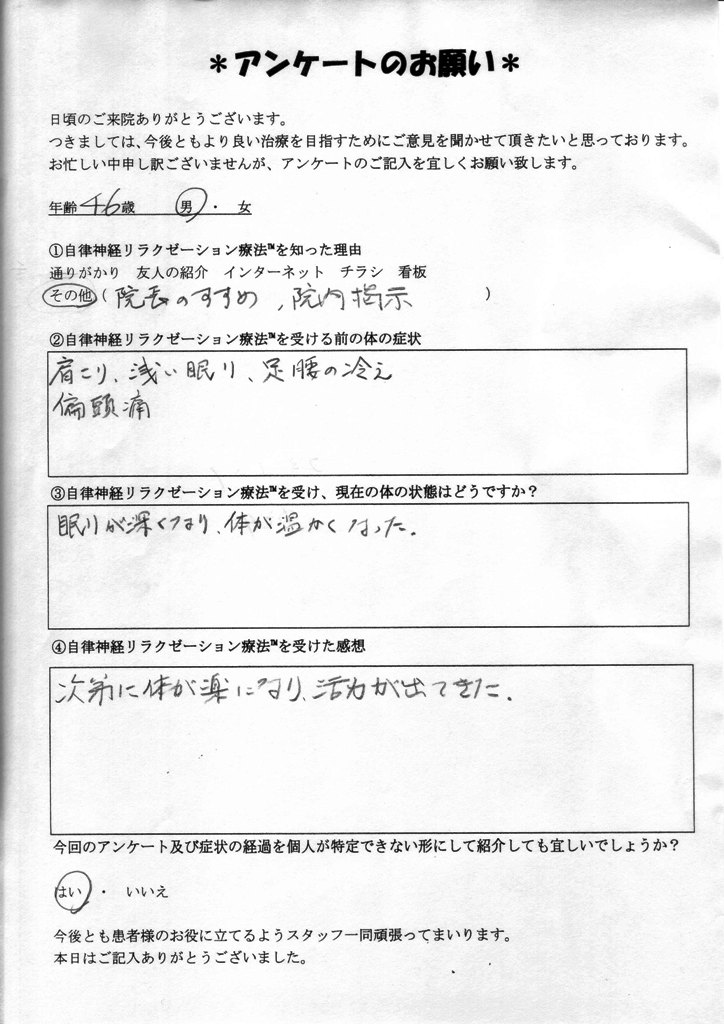 ＊アンケートのお願い＊
日頃のご来院ありがとうございます。
つきましては、今後ともより良い治療を目指すためにご意見を聞かせて頂きたいと思っております。
お忙しい中申し訳ございませんが、アンケートのご記入を宜しくお願い致します。
年齢 46歳 男 ・ 女
①自律神経リラクゼーション療法™を知った理由
通りがかり 友人の紹介 インターネット チラシ 看板
その他（院長のすすめ，院内指示）
②自律神経リラクゼーション療法™を受ける前の体の症状
肩こり、浅い眠り、足腰の冷え
偏頭痛
③自律神経リラクゼーション療法™を受け、現在の体の状態はどうですか？
眠りが深くなり、体が温かくなった。
④自律神経リラクゼーション療法™を受けた感想
次第に体が楽になり、活力が出てきた。
今回のアンケート及び症状の経過を個人が特定できない形にして紹介しても宜しいでしょうか？
はい ・ いいえ
今後とも患者様のお役に立てるようスタッフ一同頑張ってまいります。
本日はご記入ありがとうございました。